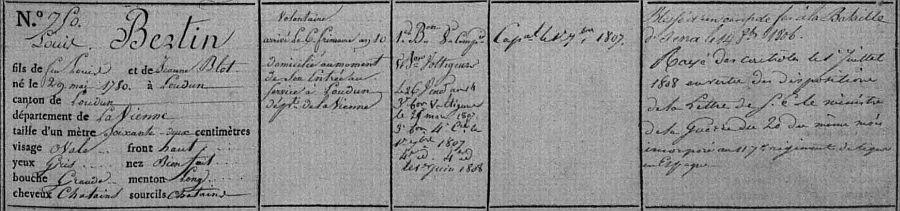 N.º 750.
Louis Bertin
fils de feu Louis et de Jeanne Blot
né le 29 mai 1780. à Loudun
canton de Loudun
département de La Vienne
taille d'un mètre Soixante-deux centimètres
visage Ovale front haut
yeux Gris nez Bien fait
bouche Grande menton Long
cheveux Chatains sourcils Chatains
Volontaire
arrivé le 6 frimaire an 10
domicilié au moment
de son Entrée au
service à Loudun
dépt. de la Vienne
1er Bon
Voltigeurs
Le 26 Vend. an 14
3e bon Voltigeurs
le 29 mars 1807
3e bon 4e Cie le
1er 7bre 1807
4e 4e
le 1er Juin 1808
Capal le 1er 7bre 1807.
Blessé d'un coup de feu à la Bataille
d'Jena le 14 8bre 1806.
Rayé des contrôles le 1er Juillet
1808 en vertu des dispositions
de la Lettre de S. E. le ministre
de la Guerre du 20 du même mois
incorporé au 117e régiment de ligne
en Espagne